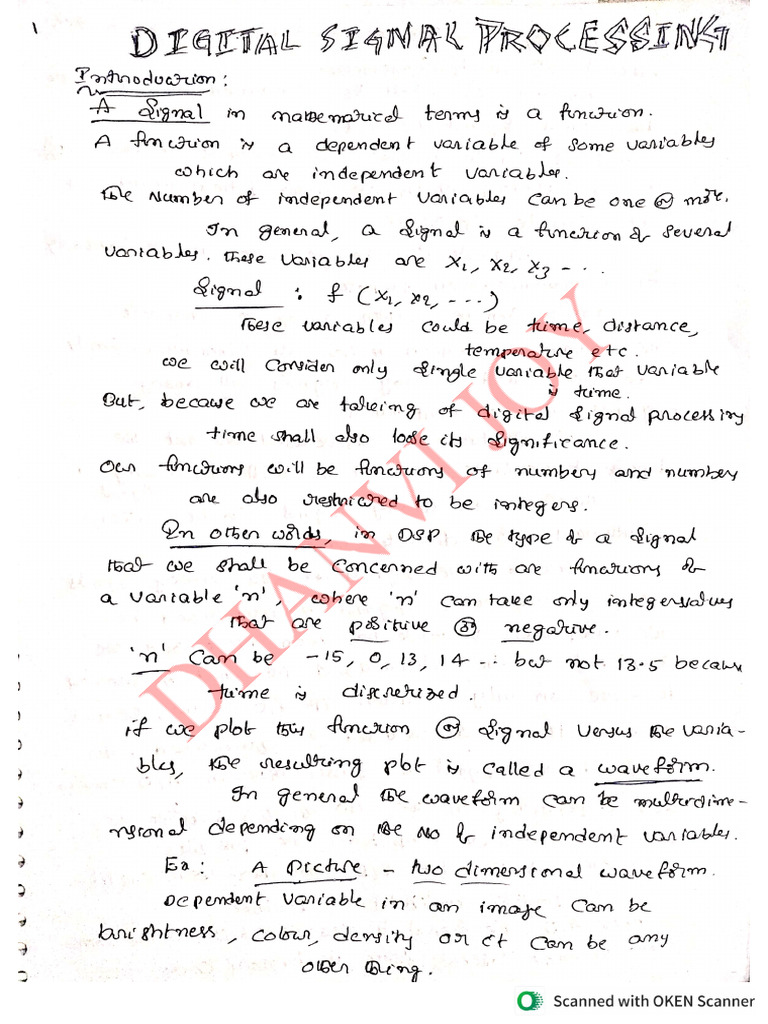 1
DIGITAL SIGNAL PROCESSING
Introduction:
A Signal in mathematical terms is a function.
A function is a dependent variable of some variables
which are independent variables.
The Number of independent variables can be one or more.
In general, a signal is a function of several
variables. These variables are x1, x2, x3 - - .
Signal : f (x1, x2, ---)
These variables could be time, distance,
temperature etc.
we will consider only single variable that variable
is time.
But, because we are talking of digital signal processing
time shall also loose its significance.
Our functions will be functions of numbers and numbers
are also restricted to be integers.
In other words, in DSP the type of a signal
that we shall be concerned with are functions of
a variable 'n', where 'n' can take only integer values
that are positive or negative.
'n' can be -15, 0, 13, 14 -- but not 13.5 because
time is discretized.
if we plot this function or signal versus the varia-
bles, the resulting plot is called a waveform.
In general the waveform can be multidime-
nsional depending on the no of independent variables.
Ex: A picture - two dimensional waveform.
Dependent variable in an image can be
brightness, colour, density or it can be any
other thing.
DHANVI JOY
Scanned with OKEN Scanner